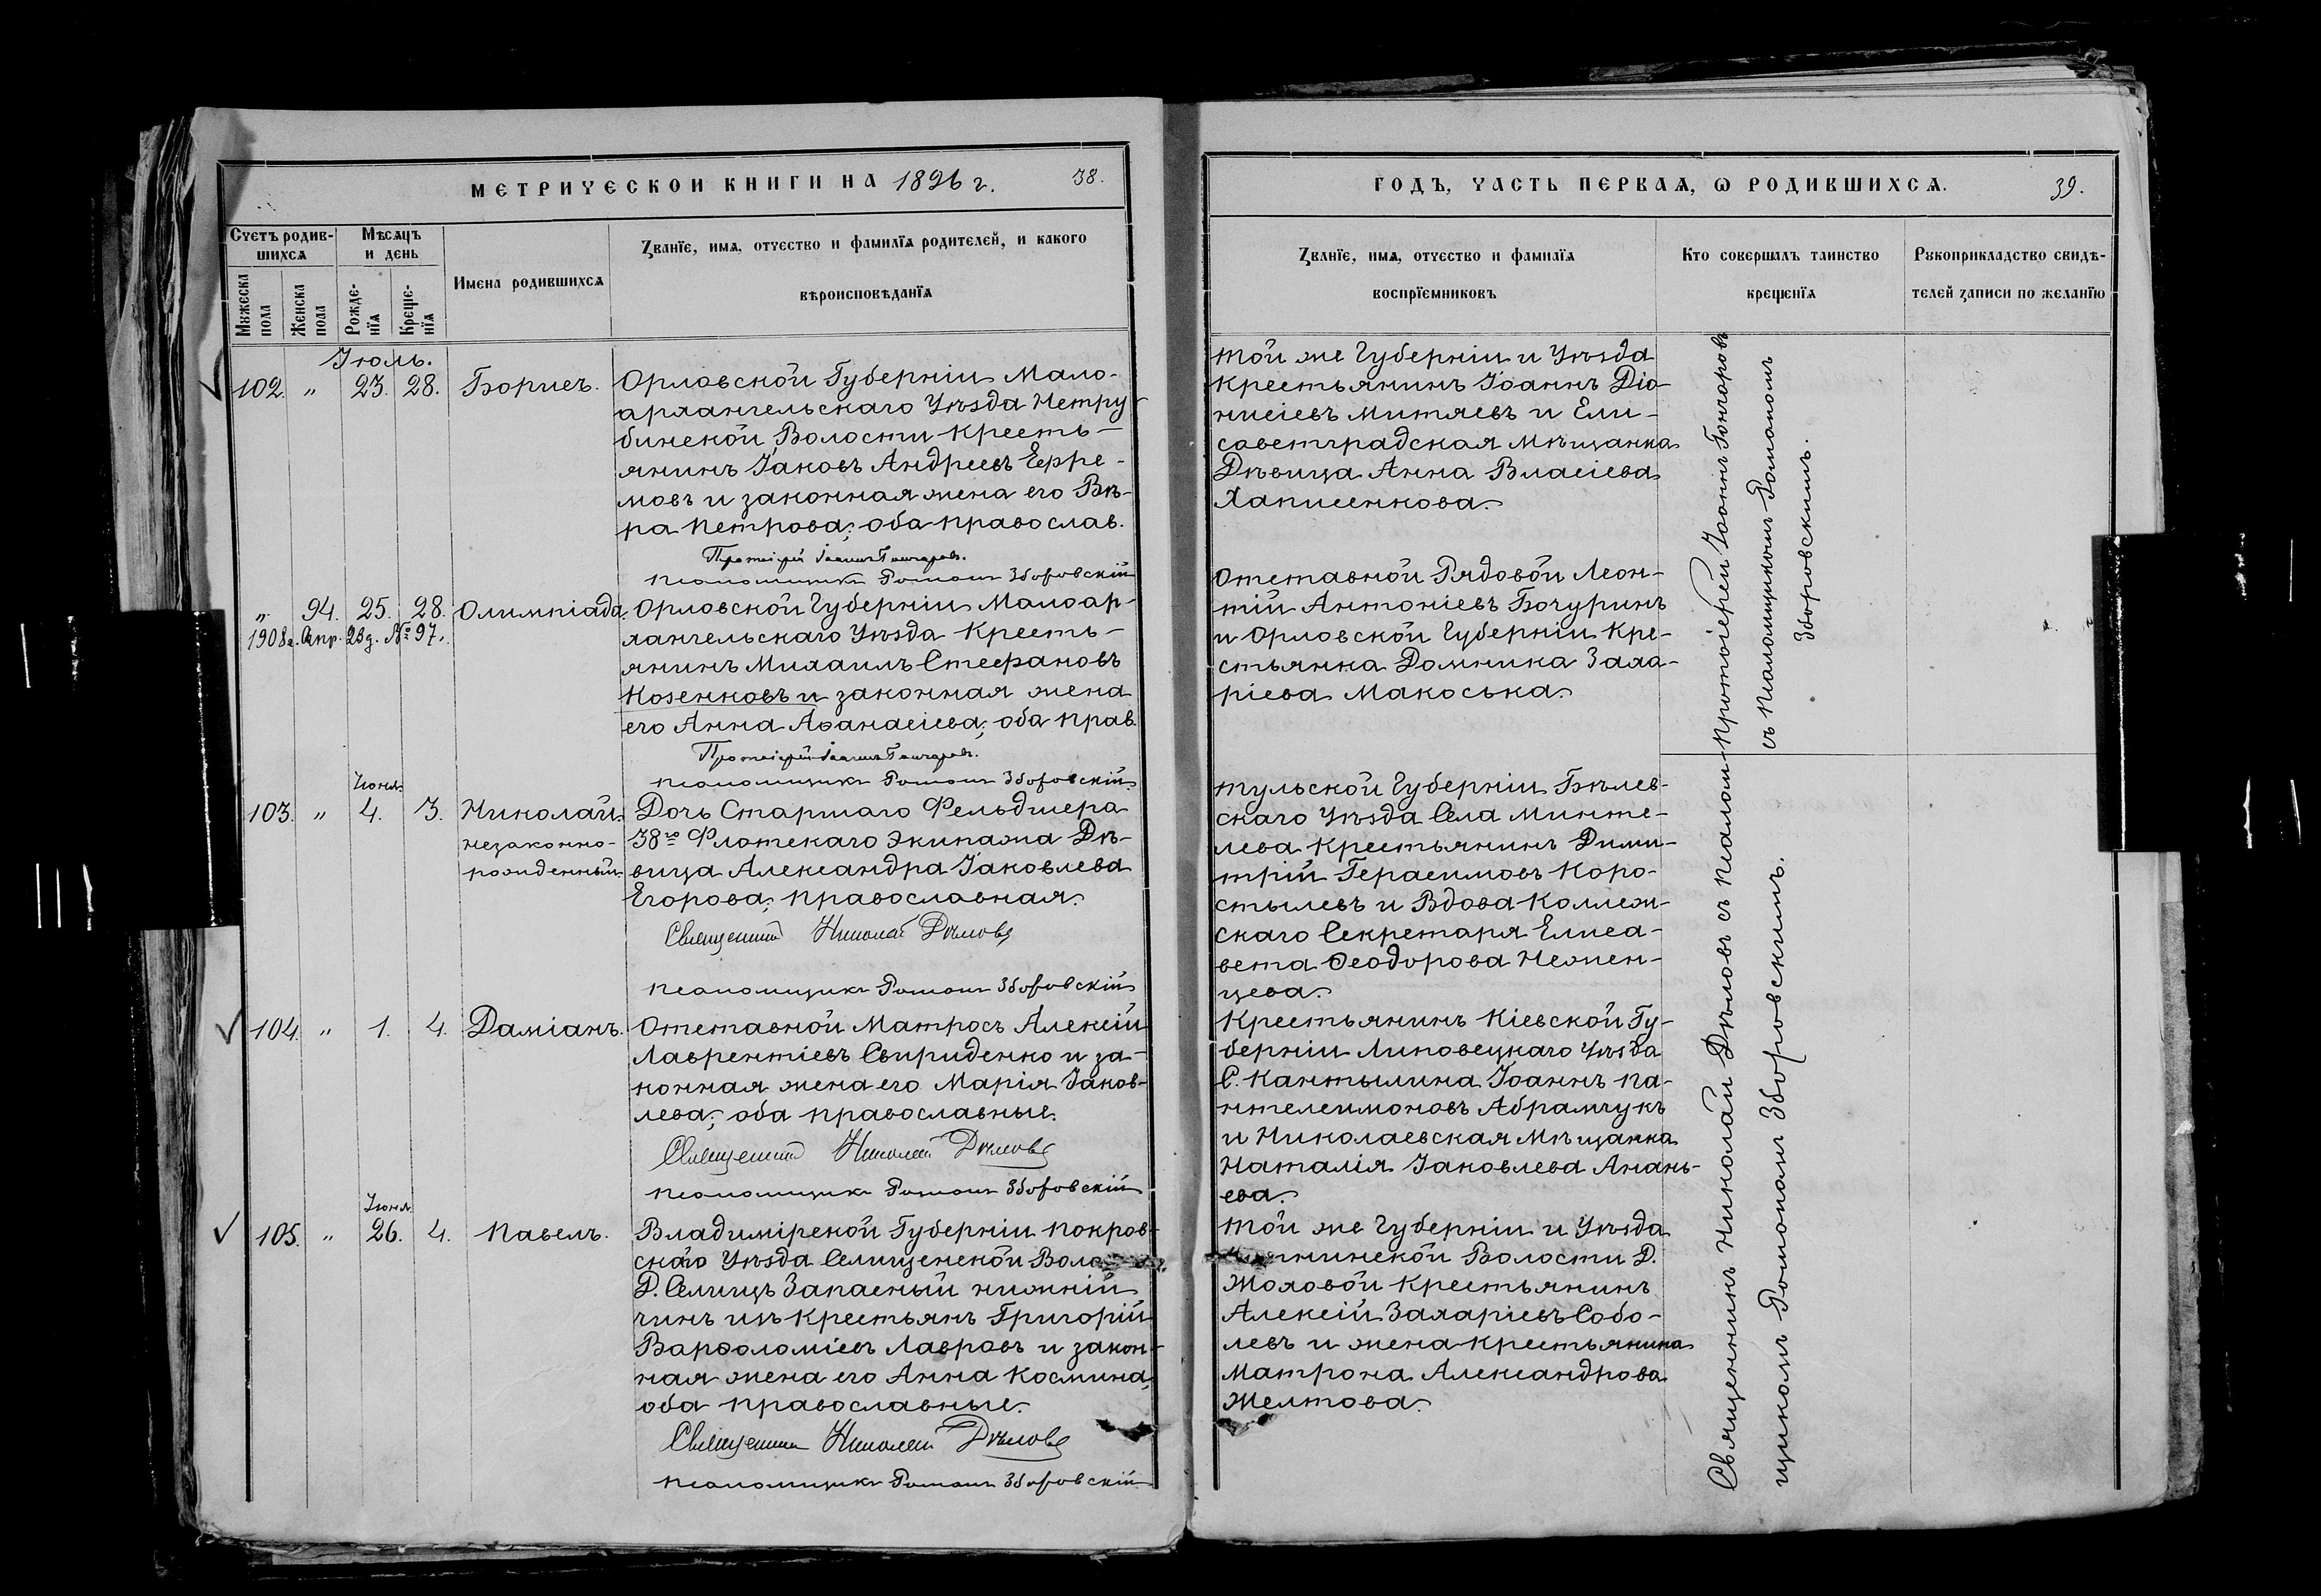 МЕТРИЧЕСКОЙ КНИГИ НА 1896 г. 38.
Счетъ родив-
шихся
Мѣсяцъ
и день
Мужеска
пола
Женска
пола
Рожде-
нїя
Креще-
нїя
Имена родившихся
Званїе, имя, отчество и фамилїя родителей, и какого
вѣроисповѣданїя
Іюль.
102. " 23. 28. Борисъ.
Орловской Губерніи Мало-
архангельскаго Уѣзда Нетру-
бинской Волости Кресть-
янинъ Іаковъ Андреевъ Ефре-
мовъ и законная жена его Вѣ-
ра Петрова; оба православ.
Протоіерей Іоаннъ Гончаровъ.
Псаломщикъ Романъ Зборовскій
" 94. 25. 28. Олимпіада.
1908г. Апр. 28д. № 97.
Орловской Губерніи Малоар-
хангельскаго Уѣзда Кресть-
янинъ Михаилъ Стефановъ
Козенковъ и законная жена
его Анна Аѳанасіева; оба прав.
Протоіерей Іоаннъ Гончаровъ.
Псаломщикъ Романъ Зборовскій
Іюня.
103. " 4. 3. Николай.
незаконно-
рожденный.
Дочь Старшаго Фельдшера
38го Флотскаго Экипажа Дѣ-
вица Александра Іаковлева
Егорова; православная.
Священникъ Николай Дѣловъ
Псаломщикъ Романъ Зборовскій
104. " 1. 4. Даміанъ.
Отставной Матросъ Алексій
Лаврентіевъ Свириденко и за-
конная жена его Марія Іаков-
лева; оба православные.
Священникъ Николай Дѣловъ
Псаломщикъ Романъ Зборовскій
Іюня
105. " 26. 4. Павелъ.
Владимірской Губерніи Покров-
скаго Уѣзда Селищенской Воло
Д. Селищъ Запасный нижній
чинъ изъ Крестьянъ Григорій
Варѳоломіевъ Лавровъ и закон-
ная жена его Анна Космина;
оба православные.
Священникъ Николай Дѣловъ
Псаломщикъ Романъ Зборовскій
ГОДЪ, ЧАСТЬ ПЕРВАЯ, Ѡ РОДИВШИХСЯ. 39.
Званїе, имя, отчество и фамилїя
воспрїемниковъ
Кто совершалъ таинство
крещенїя
Рукоприкладство свидѣ-
телей записи по желанїю
Той же Губерніи и Уѣзда
Крестьянинъ Іоаннъ Діо-
нисіевъ Митяевъ и Ели-
саветградская Мѣщанка
Дѣвица Анна Власіева
Хаписенкова.
Отставной Рядовой Леон-
тій Антоніевъ Бочуринъ
и Орловской Губерніи Кре-
стьянка Домника Заха-
ріева Макоська.
Протоіерей Іоаннъ Гончаровъ
съ Псаломщикомъ Романомъ
Зборовскимъ.
Тульской Губерніи Бѣлев-
скаго Уѣзда Села Минте-
лева Крестьянинъ Дими-
трій Герасимовъ Коро-
стылевъ и Вдова Коллеж-
скаго Секретаря Елиса-
вета Ѳеодорова Немен-
цева.
Крестьянинъ Кіевской Гу-
берніи Липовецкаго Уѣзда
С. Кантылина Іоаннъ Па-
нтелеимоновъ Абрамчукъ
и Николаевская Мѣщанка
Наталія Іаковлева Анань-
ева.
Той же Губерніи и Уѣзда
Волости Д.
Жоховой Крестьянинъ
Алексій Захаріевъ Собо-
левъ и жена крестьянина
Матрона Александрова
Желтова.
Священникъ Николай Дѣловъ съ Псалом-
щикомъ Романомъ Зборовскимъ.